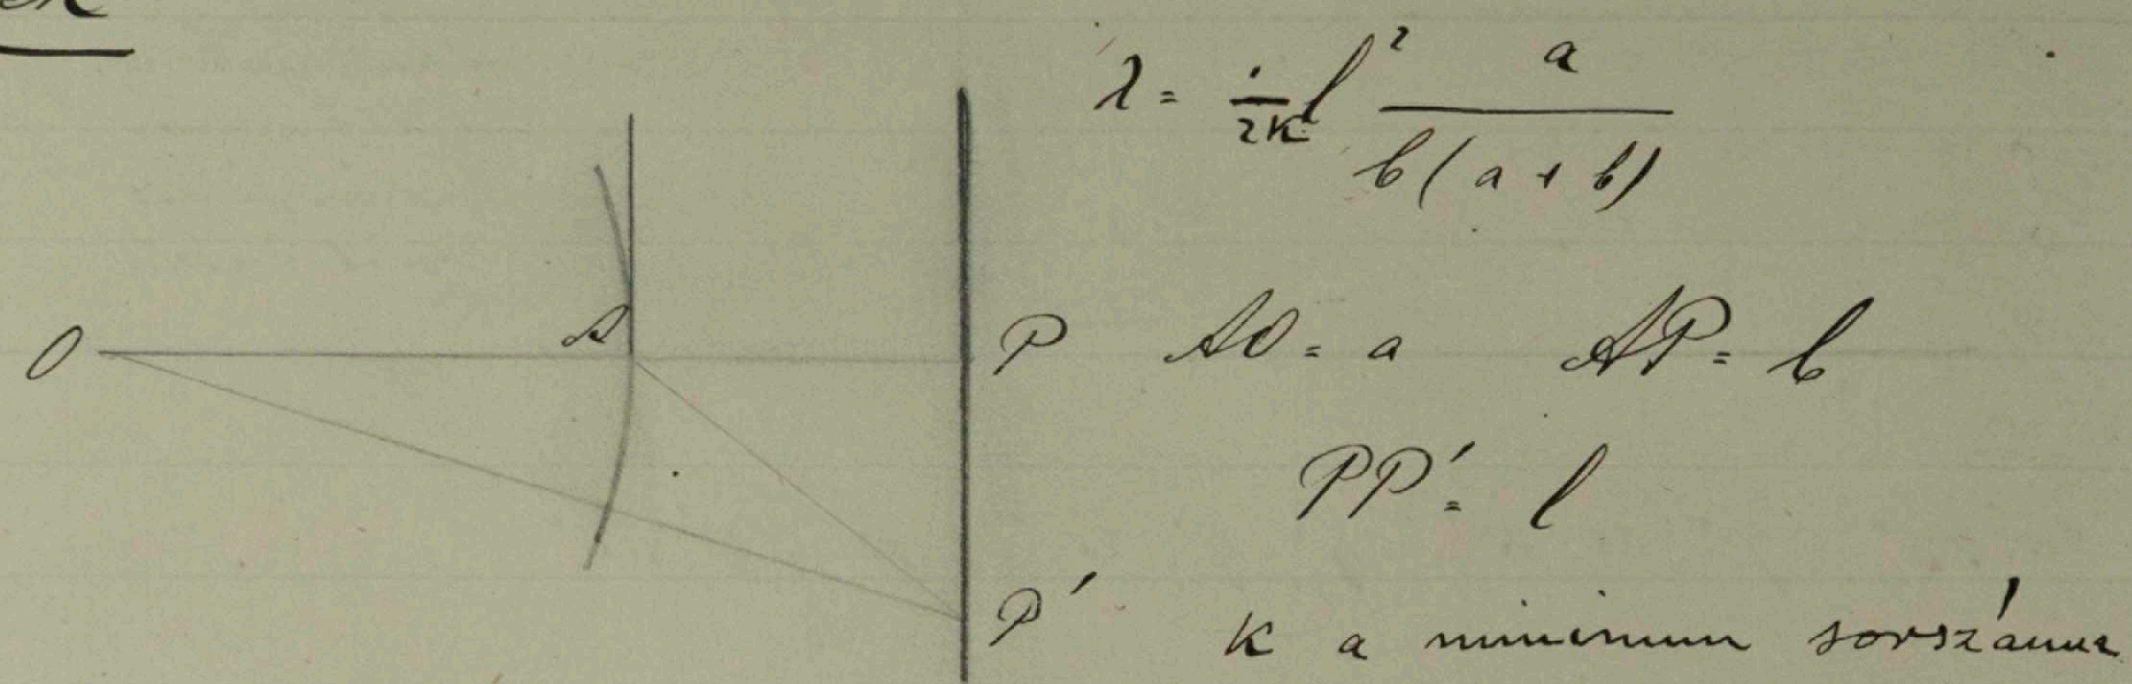 λ = 1/2k l² a / b(a + b)
O A P AO = a AP = b
PP' = l
P' k a minimum sorszáma